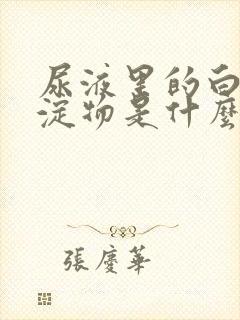 尿液里的白
淀物是什麼
張慶華